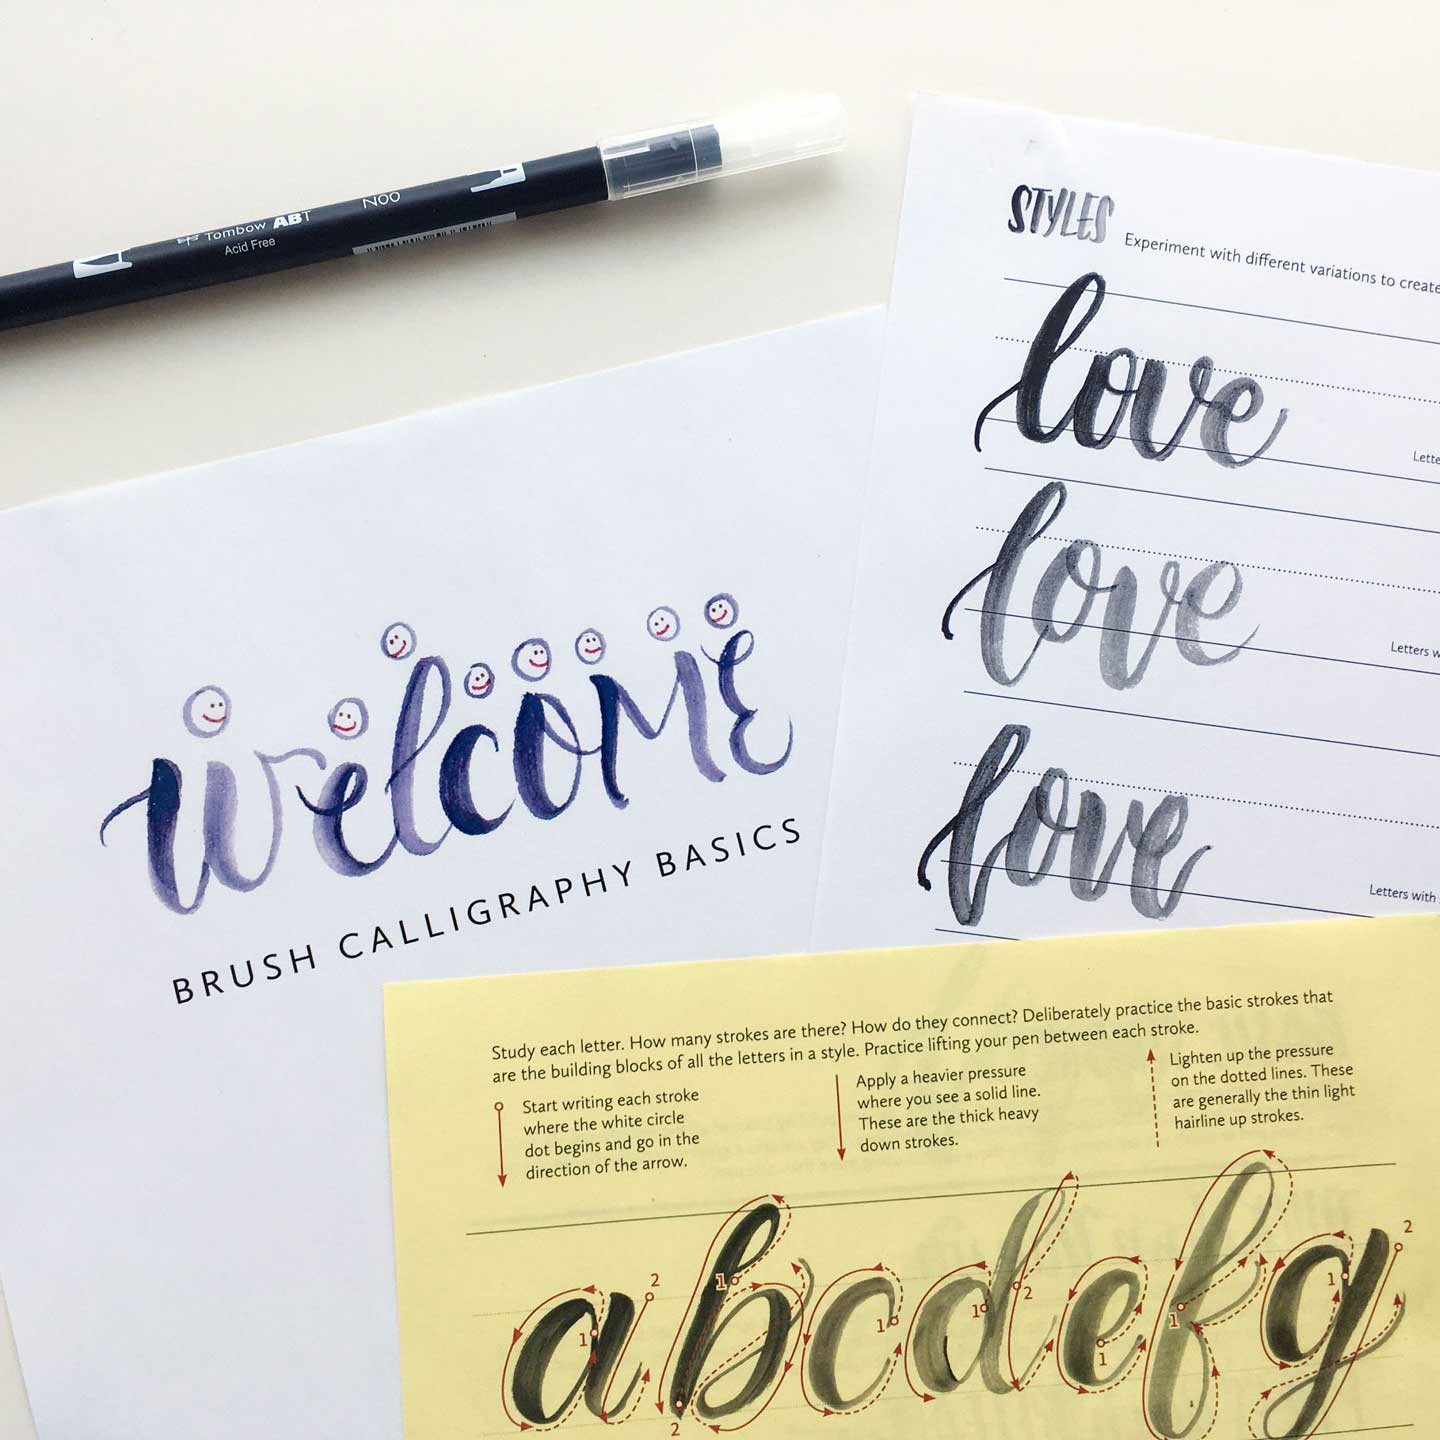 Tombow ABT
Acid Free
N00
STYLES
Experiment with different variations to create
love
Lette
love
Letters w
love
Letters with
welcome
BRUSH CALLIGRAPHY BASICS
Study each letter. How many strokes are there? How do they connect? Deliberately practice the basic strokes that
are the building blocks of all the letters in a style. Practice lifting your pen between each stroke.
Start writing each stroke
where the white circle
dot begins and go in the
direction of the arrow.
Apply a heavier pressure
where you see a solid line.
These are the thick heavy
down strokes.
Lighten up the pressure
on the dotted lines. These
are generally the thin light
hairline up strokes.
1 2 1 2 1 1 2 1 1 1 2
abcdefg